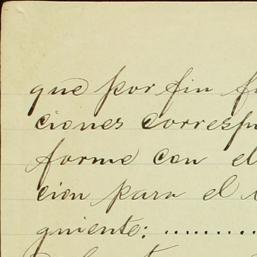 que por fin
ciones corresp
forme con el
cion para el
guiente: ..........